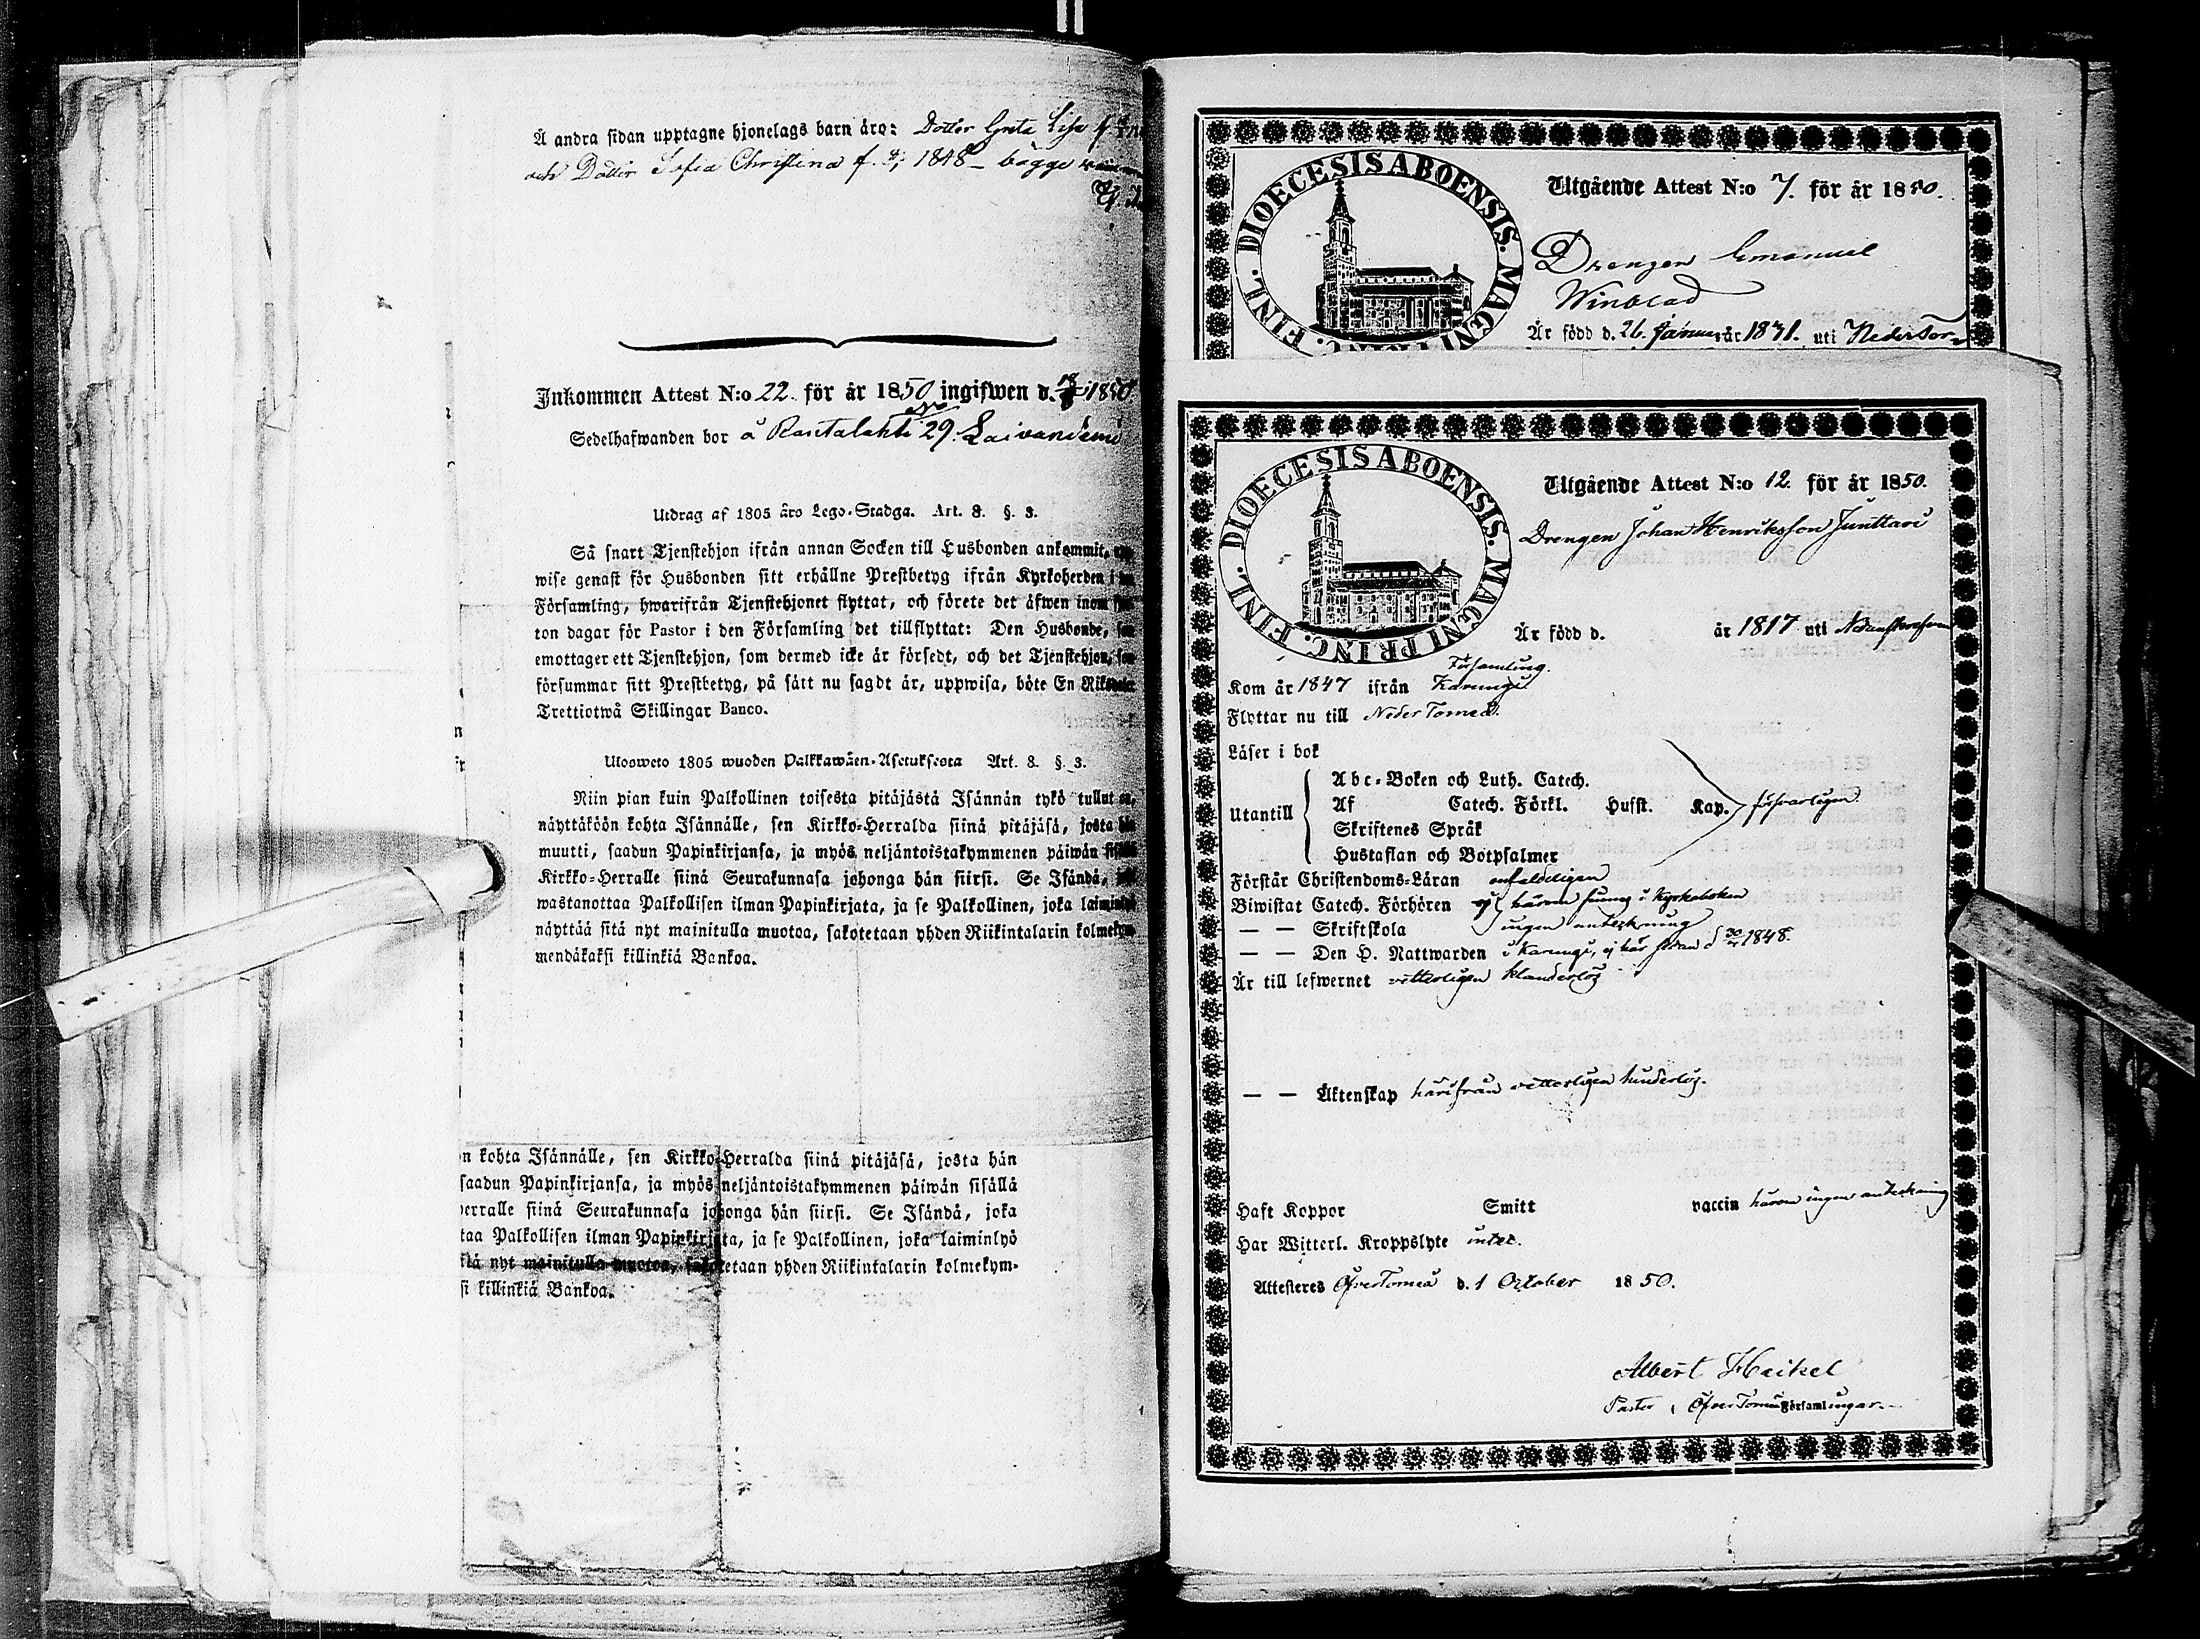 Å andra sidan upptagne hjonelags barn äro: Dotter Greta Lisa f.
och Dotter Sofia Christina f. 1848 - bägge
Inkommen Attest N:o 22. för år 1850 ingifwen d. 1850
Sedelhafwanden bor å Rantalahti No 29. Laivaniemi
Utdrag af 1805 års Lego-Stadga. Art. 8. §. 3.
Så snart Tjenstehjon ifrån annan Socken till Husbonden ankommit,
wise genast för Husbonden sitt erhållne Prestbetyg ifrån Kyrkoherden i
Församling, hwarifrån Tjenstehjonet flyttat, och förete det äfwen inom
ton dagar för Pastor i den Församling det tillflyttat: Den Husbonde,
emottager ett Tjenstehjon, som dermed icke är försedt, och det Tjenstehjon,
försummar sitt Prestbetyg, på sätt nu sagdt är, uppwisa, böte En Riksdaler
Trettiotwå Skillingar Banco.
Ulosweto 1805 wuoden Palkkawäen-Asetuksesta Art. 8. §. 3.
Niin pian kuin Palkollinen toisesta pitäjästä Isännän tykö tullut on,
näyttäköön kohta Isännälle, sen Kirkko-Herralda siinä pitäjäsä, josta hän
muutti, saadun Papinkirjansa, ja myös neljäntoistakymmenen päiwän sisällä
Kirkko-Herralle siinä Seurakunnasa johonga hän siirsi. Se Isändä,
wastanottaa Palkollisen ilman Papinkirjata, ja se Palkollinen, joka laiminlyö
näyttää sitä nyt mainitulla muotoa, sakotetaan yhden Riikintalarin kolmekym
mendäkaksi killinkiä Bankoa.
n kohta Isännälle, sen Kirkko-Herralda siinä pitäjäsä, josta hän
saadun Papinkirjansa, ja myös neljäntoistakymmenen päiwän sisällä
erralle siinä Seurakunnasa johonga hän siirsi. Se Isändä, joka
taa Palkollisen ilman Papinkirjata, ja se Palkollinen, joka laiminlyö
itä nyt mainitulla muotoa, sakotetaan yhden Riikintalarin kolmekym-
si killinkiä Bankoa.
DIOECESIS ABOENSIS. MAGNI PRINC. FINL.
Utgående Attest N:o 7. för år 1850.
Drengen Emanuel
Winblad
Är född d. 26. Januari år 1831. uti NederTor-
DIOECESIS ABOENSIS. MAGNI PRINC. FINL.
Utgående Attest N:o 12. för år 1850.
Drengen Johan Henriksson Junttari
Är född d. år 1817 uti
Församling.
Kom år 1847 ifrån Karungi
Flyttar nu till NederTorneå.
Läser i bok
Utantill
Abc-Boken och Luth. Catech.
Af Catech. Förkl. Hufst. Kap. försvarligen
Skriftenes Språk
Hustaflan och Botpsalmer
Förstår Christendoms-Läran enfaldeligen
Biwistat Catech. Förhören ej härom finnes i Kyrkoboken
— — Skriftskola ingen anteckning
— — Den H. Nattwarden i Karungi, ej här sedan d 1848.
Är till lefwernet vetterligen klanderlös
— — Äktenskap härifrån vetterligen hinderlös.
Haft Koppor Smitt vaccin härom ingen anteckning
Har Witterl. Kroppslyte intet.
Attesteres ÖfverTorneå d. 1 October 1850.
Albert Heikel
Pastor i ÖfverTorneå Församlingar.